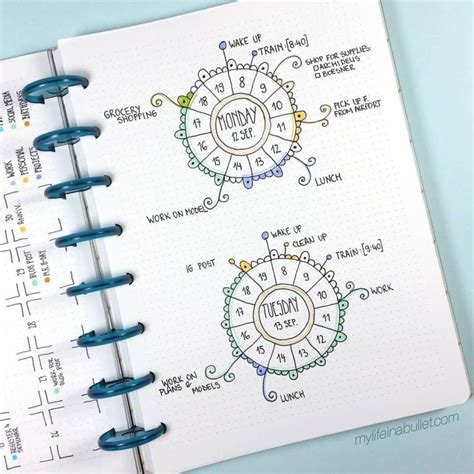 WAKE UP
TRAIN:[8:40]
SHOP FOR SUPPLIES:
ARCHIDELIS
BOESNER
GROCERY
SHOPPING
PICK UP F.
FROM AIRPORT
19 8 9 10 11 12 13 14 15 16 17 18
MONDAY
12 SEP.
LUNCH
WORK ON MODEL
WAKE UP
CLEAN UP
TRAIN:[9:40]
IG POST
19 8 9 10 11 12 13 14 15 16 17 18
TUESDAY
13 SEP.
WORK
WORK ON
PLANS & MODELS
LUNCH
SOCIAL MEDIA
BIRTHDAYS
WORK
PERSONAL
PROJECTS
30
31
ANNIV.
BLOG POST
29
28
WORK FOR
BLOG POST
24
REGISTER
mylifeinabullet.com